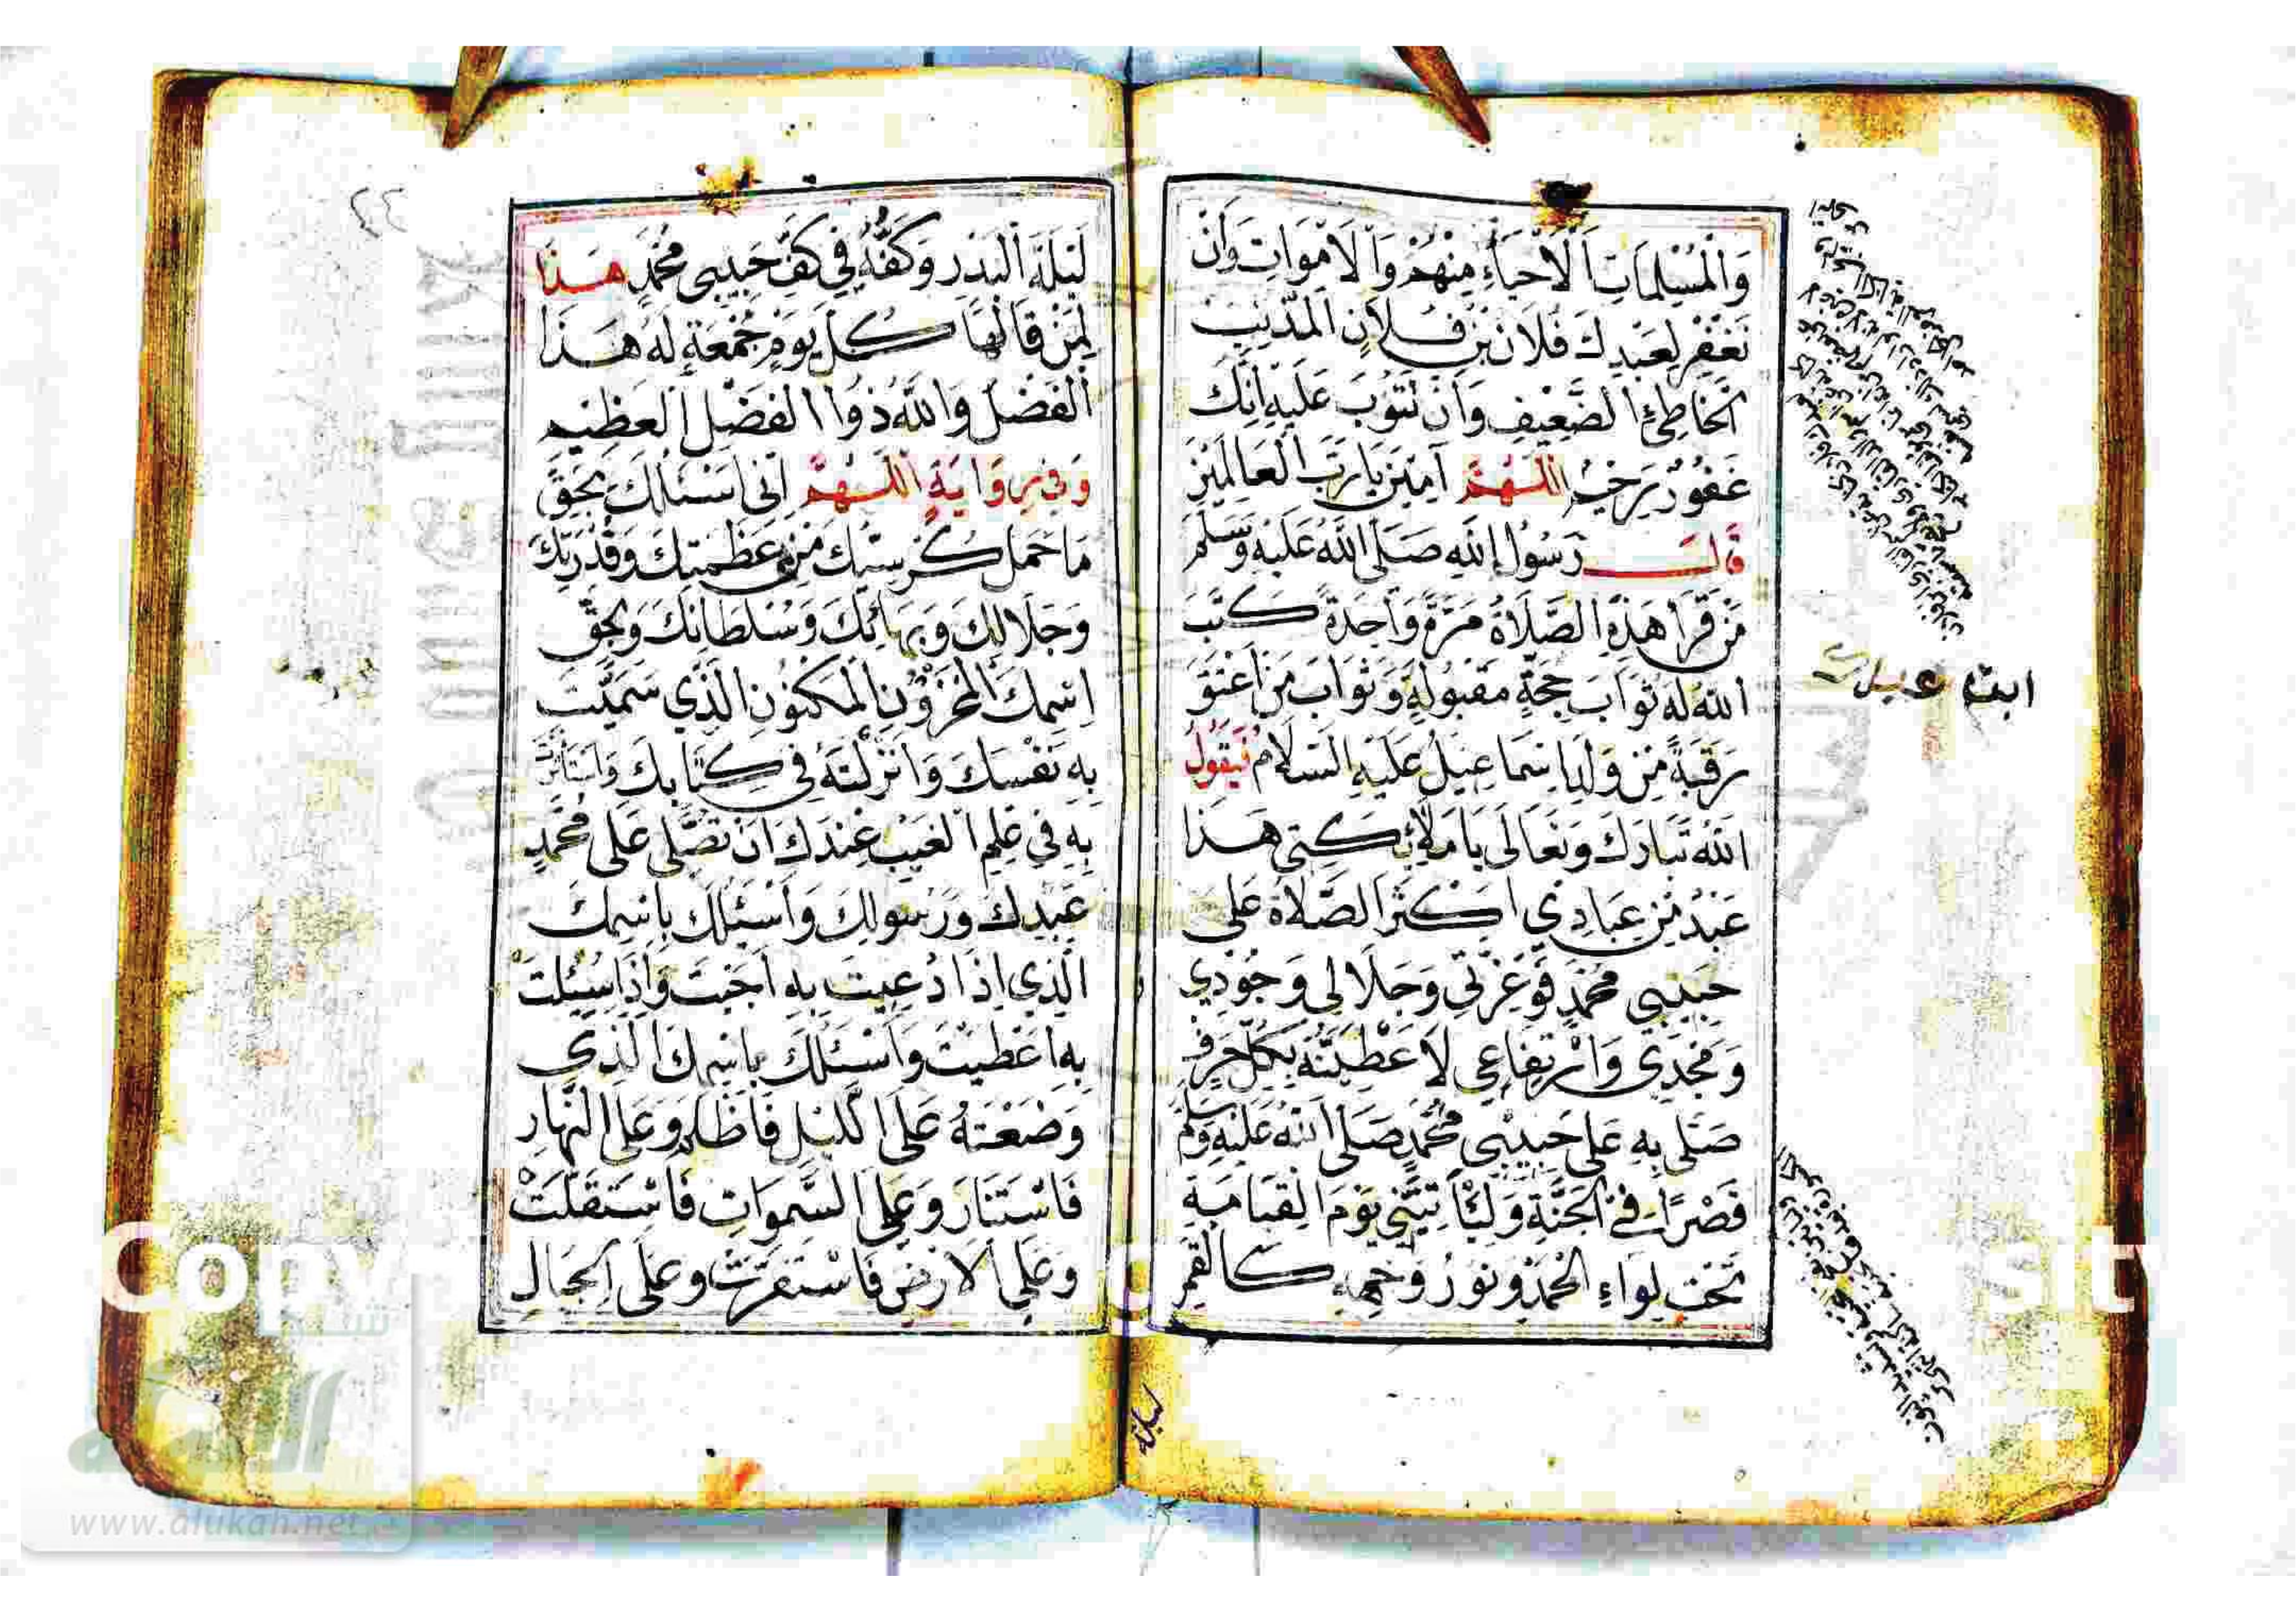 وَالْمُسْلِمَاتِ اَلْاَحْيَاءِ مِنْهُمْ وَالْاَمْوَاتِ وَاَنْ
تَغْفِرَ لِعَبْدِكَ فُلَانِ بْنِ فُلَانِ الْمُذْنِبِ
الْخَاطِئِ الضَّعِيْفِ وَاَنْ تَتُوْبَ عَلَيْهِ اِنَّكَ
غَفُوْرٌ رَحِيْمٌ اَللّٰهُمَّ آمِيْنَ يَارَبَّ الْعَالَمِيْنَ
قَالَ رَسُوْلُ اللهِ صَلَّى اللّٰهُ عَلَيْهِ وَسَلَّمَ
مَنْ قَرَأَ هَذِهِ الصَّلَاةَ مَرَّةً وَاحِدَةً كَتَبَ
اللهُ لَهُ ثَوَابَ حَجَّةٍ مَقْبُوْلَةٍ وَثَوَابَ مَنْ اَعْتَقَ
رَقَبَةً مِنْ وَلَدِ اِسْمَاعِيْلَ عَلَيْهِ السَّلَامُ فَيَقُوْلُ
اللهُ تَبَارَكَ وَتَعَالَى يَامَلَائِكَتِي هَذَا
عَبْدٌ مِنْ عِبَادِي اَكْثَرَ الصَّلَاةَ عَلَى
حَبِيْبِي مُحَمَّدٍ فَوَعِزَّتِي وَجَلَالِي وَجُوْدِي
وَمَجْدِي وَارْتِفَاعِي لَاُعْطِيَنَّهُ بِكُلِّ حَرْفٍ
صَلَّى بِهِ عَلَى حَبِيْبِي مُحَمَّدٍ صَلَّى اللهُ عَلَيْهِ وَسَلَّمَ
قَصْرًا فِي الْجَنَّةِ وَلَيَأْتِيَنِّي يَوْمَ الْقِيَامَةِ
تَحْتَ لِوَاءِ الْحَمْدِ وَنُوْرُ وَجْهِهِ كَالْقَمَرِ
لَيْلَةَ الْبَدْرِ وَكَفُّهُ فِي كَفِّ حَبِيْبِي مُحَمَّدٍ هَذَا
لِمَنْ قَالَهَا كُلَّ يَوْمِ جُمُعَةٍ لَهُ هَذَا
الْفَضْلُ وَاللهُ ذُوا الْفَضْلِ الْعَظِيْمِ
وَفِي رِوَايَةٍ اَللّٰهُمَّ اِنِّي اَسْئَالُكَ بِحَقِّ
مَا حَمَلَ كُرْسِيُّكَ مِنْ عَظَمَتِكَ وَقُدْرَتِكَ
وَجَلَالِكَ وَبَهَائِكَ وَسُلْطَانِكَ وَبِحَقِّ
اِسْمِكَ الْمَخْزُوْنِ الْمَكْنُوْنِ الَّذِي سَمَّيْتَ
بِهِ نَفْسَكَ وَاَنْزَلْتَهُ فِي كِتَابِكَ وَاسْتَأْثَرْتَ
بِهِ فِي عِلْمِ الْغَيْبِ عِنْدَكَ اَنْ تُصَلِّيَ عَلَى مُحَمَّدٍ
عَبْدِكَ وَرَسُوْلِكَ وَاَسْئَلُكَ بِاسْمِكَ
الَّذِي اِذَا دُعِيْتَ بِهِ اَجَبْتَ وَاِذَا سُئِلْتَ
بِهِ اَعْطَيْتَ وَاَسْئَلُكَ بِاسْمِكَ الَّذِي
وَضَعْتَهُ عَلَى اللَّيْلِ فَاَظْلَمَ وَعَلَى النَّهَارِ
فَاسْتَنَارَ وَعَلَى السَّمٰوَاتِ فَاسْتَقَلَّتْ
وَعَلَى الْاَرْضِ فَاسْتَقَرَّتْ وَعَلَى الْجِبَالِ
Copy
sit
شبكة
الالوكة
www.alukah.net